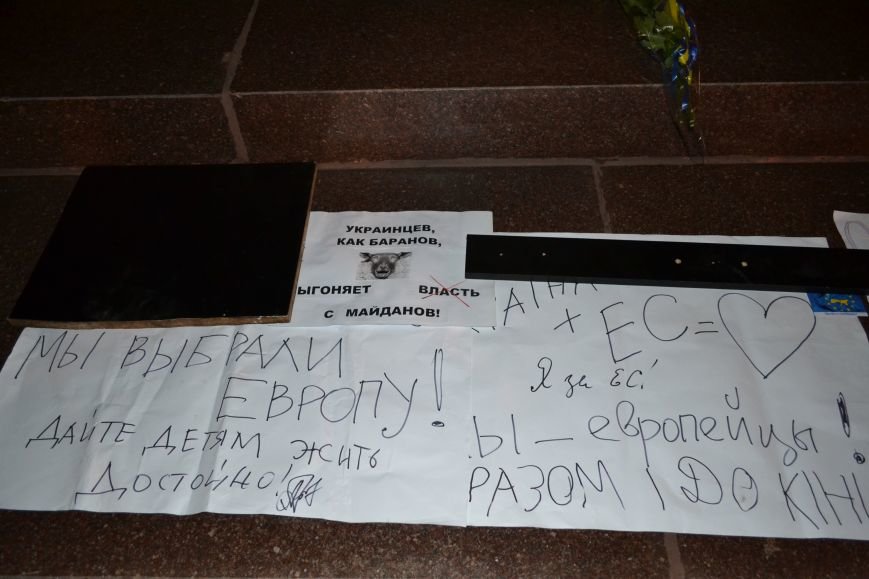 УКРАИНЦЕВ,
КАК БАРАНОВ,
ЫГОНЯЕТ ВЛАСТЬ
С МАЙДАНОВ!
МЫ ВЫБРАЛИ
ЕВРОПУ!
ДАЙТЕ ДЕТЯМ ЖИТЬ
ДОСТОЙНО!
АЇНА
х ЕС = ♡
Я за ЕС!
Ы – европейцы!
РАЗОМ І ДО КІНЦ